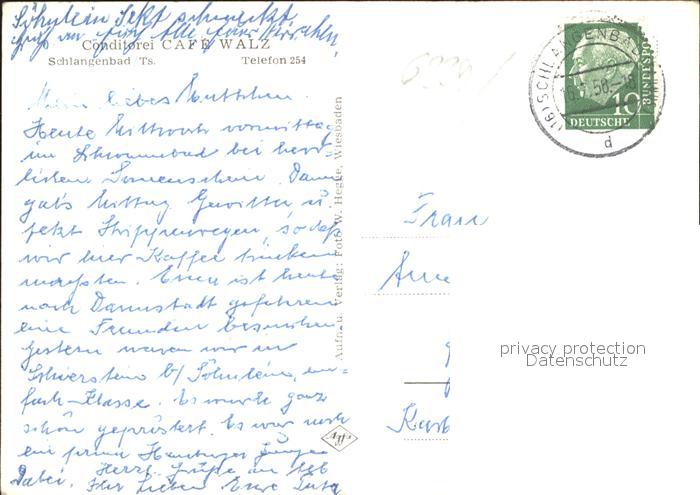 Söhnlein Sekt schmeckt,
Conditorei CAFÉ WALZ
Schlangenbad Ts. Telefon 254
Mein liebes Muttchen.
Heute Mittwoch vormittag
im Schwimmbad bei herr-
lichem Sonnenschein. Dann
gab's Mittag Gewitter u.
jetzt Strippenregen, so daß
wir hier Kaffee trinken
mußten. ist heute
nach Darmstadt gefahren
eine Freundin besuchen.
Gestern waren wir in
Schierstein b/ Söhnlein, ein-
fach Klasse. Es wurde ganz
schön geprostet. Es war noch
ein prima Hamburger Junge
dabei. Herzl. Grüße an
Ihr Lieben Eure
Aufn. u. Verlag: Foto W. Hegge, Wiesbaden
Agfa
(16) SCHLANGENBAD
d
10
DEUTSCHE
BUNDESPOST
Frau
privacy protection
Datenschutz